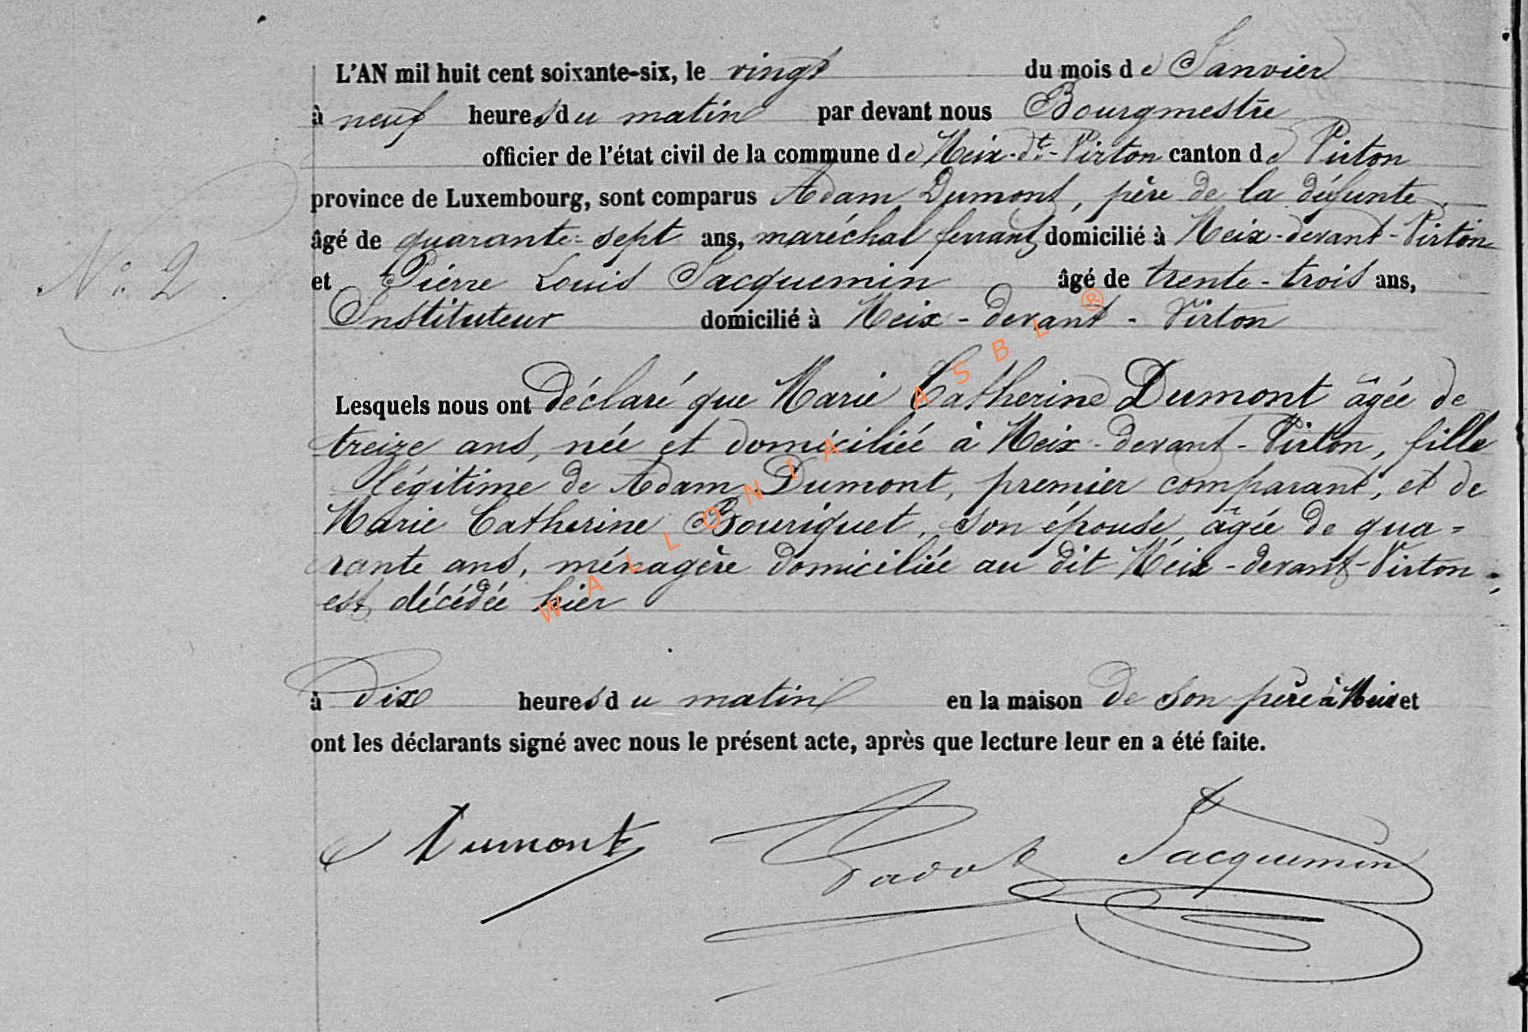 L'AN mil huit cent soixante-six, le vingt du mois de Janvier
à neuf heures du matin par devant nous Bourgmestre
officier de l'état civil de la commune de Meix-dt-Virton canton de Virton
province de Luxembourg, sont comparus Adam Dumont, père de la défunte,
âgé de quarante-sept ans, maréchal ferrant, domicilié à Meix-devant-Virton
N° 2.
et Pierre Louis Jacquemin âgé de trente-trois ans,
Instituteur domicilié à Meix-devant-Virton
Lesquels nous ont déclaré que Marie Catherine Dumont âgée de
treize ans, née et domiciliée à Meix-devant-Virton, fille
légitime de Adam Dumont, premier comparant, et de
Marie Catherine Bouriquet, son épouse, âgée de qua=
rante ans, ménagère domiciliée au dit Meix-devant-Virton;
est décédée hier
à dix heures du matin en la maison de son père à Meix et
ont les déclarants signé avec nous le présent acte, après que lecture leur en a été faite.
Dumont Jacquemin
WALLONIA ASBL ®